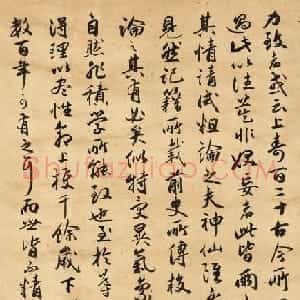 力致者或云上壽百二十古今所
過此以往莫非妖妄者此皆兩
其情請試粗論之夫神仙雖
見然記籍所載前史所傳較
論之其有必矣似特受異氣
自然非積學所能致也至於導
得理以盡性命上獲千餘歲下
數百年可有之耳而世皆不精